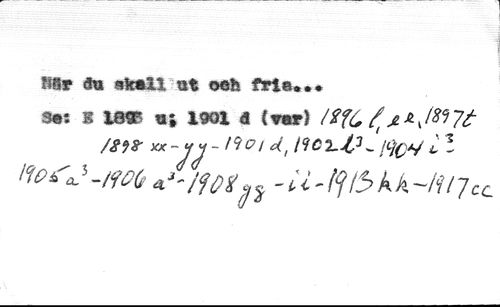 När du skall ut och fria...
Se: E 1895 u; 1901 d (var) 1896 l, ee, 1897t
1898 xx-yy-1901d, 1902 l³-1904 i³-
1905 a³-1906 a³-1908 gg-ii-1913 kk-1917cc